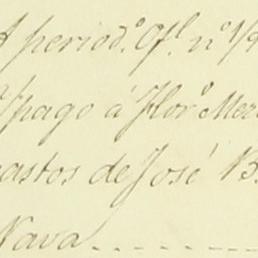 A period.º Of.l nº 1/
Y pago á Flor.º Mer
astos de José B.
Nava